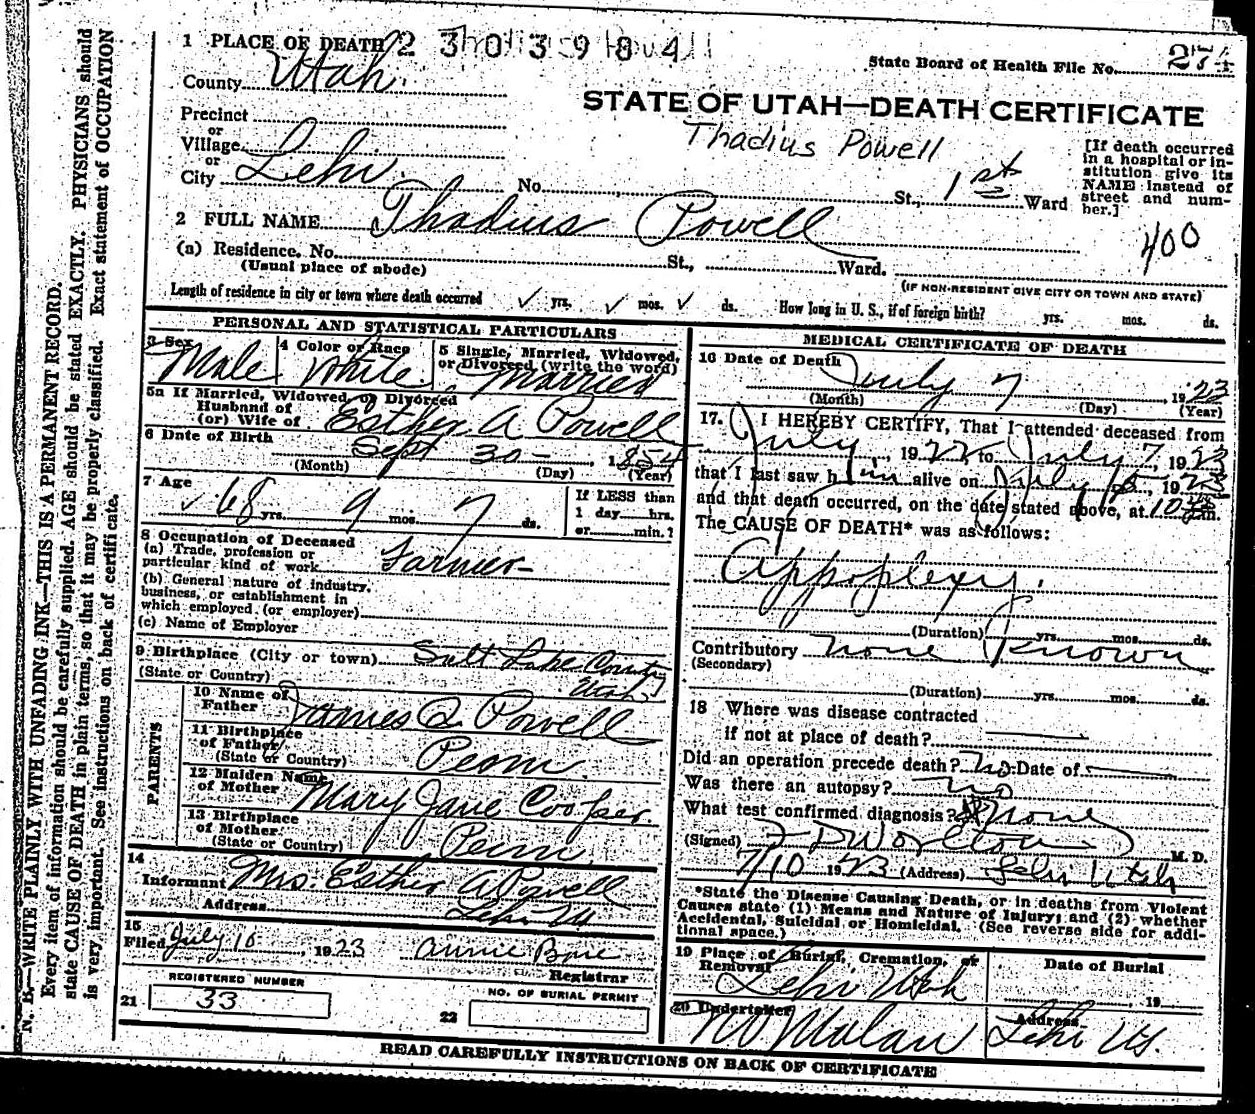 1 PLACE OF DEATH 2 3 0 3 9 8 4
State Board of Health File No. 274
County Utah.
STATE OF UTAH—DEATH CERTIFICATE
Thadius Powell
Precinct
or
Village
or
City Lehi. No. St., 1st Ward
[If death occurred in a hospital or institution give its NAME instead of street and number.]
2 FULL NAME Thadius Powell
400
(a) Residence. No. St., Ward.
(Usual place of abode)
(IF NON-RESIDENT GIVE CITY OR TOWN AND STATE)
Length of residence in city or town where death occurred ✓ yrs. ✓ mos. ✓ ds. How long in U. S., if of foreign birth? yrs. mos. ds.
PERSONAL AND STATISTICAL PARTICULARS
3 Sex Male
4 Color or Race White
5 Single, Married, Widowed, or Divorced (write the word) Married
5a If Married, Widowed or Divorced
Husband of
(or) Wife of Esther A Powell
6 Date of Birth Sept 30 - 1854
(Month) (Day) (Year)
7 Age ✓ 68 yrs. 9 mos. 7 ds.
If LESS than
1 day hrs.
or min.?
8 Occupation of Deceased
(a) Trade, profession or
particular kind of work Farmer-
(b) General nature of industry,
business, or establishment in
which employed (or employer)
(c) Name of Employer
9 Birthplace (City or town) Salt Lake County
(State or Country) Utah
PARENTS
10 Name of
Father James Q. Powell
11 Birthplace
of Father
(State or Country)
12 Maiden Name
of Mother Mary Jane Cooper.
13 Birthplace
of Mother
(State or Country)
14
Informant Mrs. Esther A Powell
Address Lehi Ut
15
Filed July 10 1923
Registrar
REGISTERED NUMBER
21 33
NO. OF BURIAL PERMIT
22
MEDICAL CERTIFICATE OF DEATH
16 Date of Death July 7, 1923
(Month) (Day) (Year)
17. I HEREBY CERTIFY, That I attended deceased from
July, 1922, to July 7, 1923
that I last saw him alive on July, 1923
and that death occurred, on the date stated above, at 10 m.
The CAUSE OF DEATH* was as follows:
Appoplexy.
(Duration) yrs. mos. ds.
Contributory none Known
(Secondary)
(Duration) yrs. mos. ds.
18 Where was disease contracted
if not at place of death?
Did an operation precede death? No Date of
Was there an autopsy? No
What test confirmed diagnosis? None
(Signed) M. D.
7/10 1923 (Address) Lehi Utah
*State the Disease Causing Death, or in deaths from Violent
Causes state (1) Means and Nature of Injury; and (2) whether
Accidental, Suicidal or Homicidal. (See reverse side for additional space.)
19 Place of Burial, Cremation, or
Removal Lehi Utah
Date of Burial
, 19
20 Undertaker
Address Lehi Ut.
READ CAREFULLY INSTRUCTIONS ON BACK OF CERTIFICATE
N. B.—WRITE PLAINLY WITH UNFADING INK—THIS IS A PERMANENT RECORD.
Every item of information should be carefully supplied. AGE should be stated EXACTLY. PHYSICIANS should
state CAUSE OF DEATH in plain terms, so that it may be properly classified. Exact statement of OCCUPATION
is very important. See instructions on back of certificate.